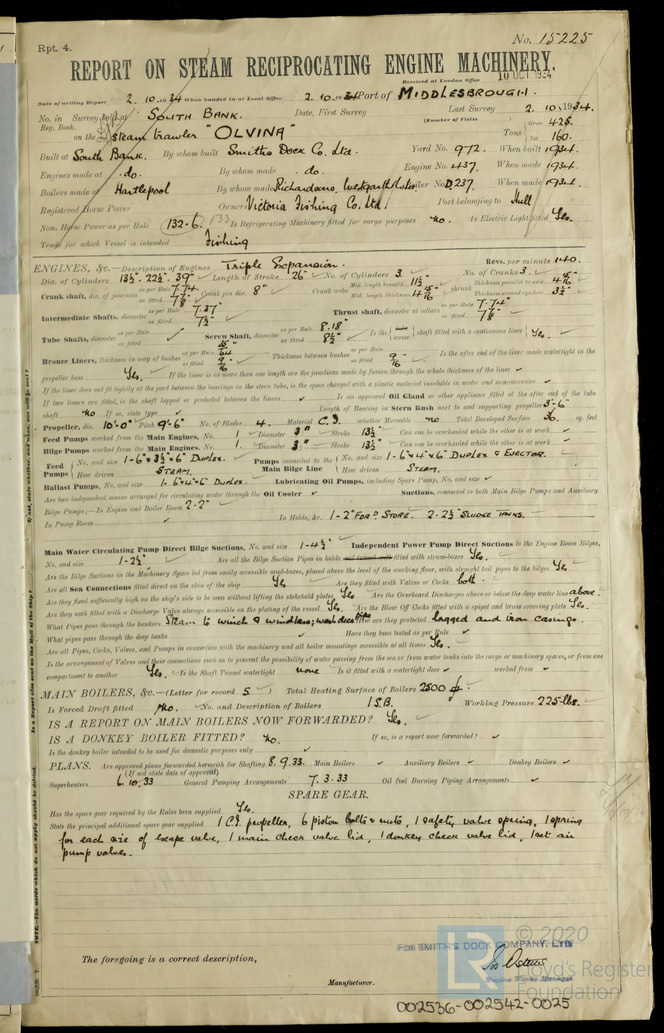 Rpt. 4.
No. 15225
REPORT ON STEAM RECIPROCATING ENGINE MACHINERY.
Received at London Office 10 OCT 1934
Date of writing Report 2.10.1934 When handed in at Local Office 2.10.1934 Port of MIDDLESBROUGH.
No. in Survey held at SOUTH BANK. Date, First Survey Last Survey 2.10.1934.
Reg. Book. (Number of Visits
on the Steam trawler "OLVINA" Tons Gross 425. Net 160.
Built at South Bank. By whom built Smiths Dock Co. Ltd. Yard No. 972. When built 1934.
Engines made at do. By whom made do. Engine No. 437. When made 1934.
Boilers made at Hartlepool By whom made Richardsons, Westgarth Boiler No. D.237. When made 1934.
Registered Horse Power Owners Victoria Fishing Co. Ltd. Port belonging to Hull
Nom. Horse Power as per Rule 132.6. 133 Is Refrigerating Machinery fitted for cargo purposes no. Is Electric Light fitted Yes.
Trade for which Vessel is intended Fishing
ENGINES, &c.—Description of Engines Triple Expansion. Revs. per minute 140.
Dia. of Cylinders 13½". 22½". 39" Length of Stroke 26" No. of Cylinders 3. No. of Cranks 3.
Crank shaft, dia. of journals as per Rule 7.74 as fitted 7⅞ Crank pin dia. 8" Crank webs Mid. length breadth 11½ Mid. length thickness 4 15/16 shrunk Thickness parallel to axis 4 15/16 Thickness around eyehole 3½"
Intermediate Shafts, diameter as per Rule 7.37 as fitted 7½" Thrust shaft, diameter at collars as per Rule 7.74 as fitted 7⅞
Tube Shafts, diameter as per Rule as fitted Screw Shaft, diameter as per Rule 8.18" as fitted 8½" Is the screw shaft fitted with a continuous liner Yes.
Bronze Liners, thickness in way of bushes as per Rule as fitted 9/16 Thickness between bushes as per Rule as fitted 9/16 Is the after end of the liner made watertight in the
propeller boss Yes. If the liner is in more than one length are the junctions made by fusion through the whole thickness of the liner
If the liner does not fit tightly at the part between the bearings in the stern tube, is the space charged with a plastic material insoluble in water and non-corrosive
If two liners are fitted, is the shaft lapped or protected between the liners Is an approved Oil Gland or other appliance fitted at the after end of the tube
shaft no If so, state type Length of Bearing in Stern Bush next to and supporting propeller 3'-6"
Propeller, dia. 10'-0" Pitch 9'-6" No. of Blades 4. Material C.I. whether Moveable no Total Developed Surface 36. sq. feet
Feed Pumps worked from the Main Engines, No. 1 Diameter 3" Stroke 13½" Can one be overhauled while the other is at work
Bilge Pumps worked from the Main Engines, No. 1 Diameter 3" Stroke 13½" Can one be overhauled while the other is at work
Feed Pumps No. and size 1-6"x3½"x6" DUPLEX. Pumps connected to the Main Bilge Line No. and size 1-6"x4"x6" DUPLEX & EJECTOR.
How driven STEAM. How driven STEAM.
Ballast Pumps, No. and size 1-6"x4"x6" DUPLEX. Lubricating Oil Pumps, including Spare Pump, No. and size
Are two independent means arranged for circulating water through the Oil Cooler Suctions, connected to both Main Bilge Pumps and Auxiliary
Bilge Pumps;—In Engine and Boiler Room 2-2"
In Pump Room In Holds, &c. 1-2" FORD STORE. 2-2½" SLUDGE TANKS.
Main Water Circulating Pump Direct Bilge Suctions, No. and size 1-4½" Independent Power Pump Direct Suctions to the Engine Room Bilges,
No. and size 1-2½" Are all the Bilge Suction Pipes in holds and tunnel well fitted with strum-boxes Yes.
Are the Bilge Suctions in the Machinery Space led from easily accessible mud-boxes, placed above the level of the working floor, with straight tail pipes to the bilges Yes
Are all Sea Connections fitted direct on the skin of the ship Yes Are they fitted with Valves or Cocks both.
Are they fixed sufficiently high on the ship's side to be seen without lifting the stokehold plates Yes Are the Overboard Discharges above or below the deep water line above.
Are they each fitted with a Discharge Valve always accessible on the plating of the vessel Yes. Are the Blow Off Cocks fitted with a spigot and brass covering plate Yes.
What Pipes pass through the bunkers Steam to winch & windlass; wash deck pipe How are they protected lagged and iron casings.
What pipes pass through the deep tanks Have they been tested as per Rule
Are all Pipes, Cocks, Valves, and Pumps in connection with the machinery and all boiler mountings accessible at all times Yes.
Is the arrangement of Valves and their connections such as to prevent the possibility of water passing from the sea or from water tanks into the cargo or machinery spaces, or from one
compartment to another Yes. Is the Shaft Tunnel watertight none Is it fitted with a watertight door worked from
MAIN BOILERS, &c.—(Letter for record S.) Total Heating Surface of Boilers 2500
Is Forced Draft fitted no. No. and Description of Boilers 1 S.B. Working Pressure 225 lbs.
IS A REPORT ON MAIN BOILERS NOW FORWARDED? Yes.
IS A DONKEY BOILER FITTED? no. If so, is a report now forwarded?
Is the donkey boiler intended to be used for domestic purposes only
PLANS. Are approved plans forwarded herewith for Shafting 8.9.33. Main Boilers Auxiliary Boilers Donkey Boilers
(If not state date of approval)
Superheaters 6.10.33 General Pumping Arrangements 7.3.33 Oil fuel Burning Piping Arrangements
SPARE GEAR.
Has the spare gear required by the Rules been supplied Yes.
State the principal additional spare gear supplied 1 C.I. propeller, 6 piston bolts & nuts, 1 safety valve spring, 1 spring
for each size of escape valve, 1 main check valve lid, 1 donkey check valve lid, 1 set air
pump valves.
FOR SMITH'S DOCK COMPANY, LTD.
The foregoing is a correct description,
Engine Works Manager
Manufacturer.
© 2020
LR
Lloyd's Register
Foundation
002536-002542-0025